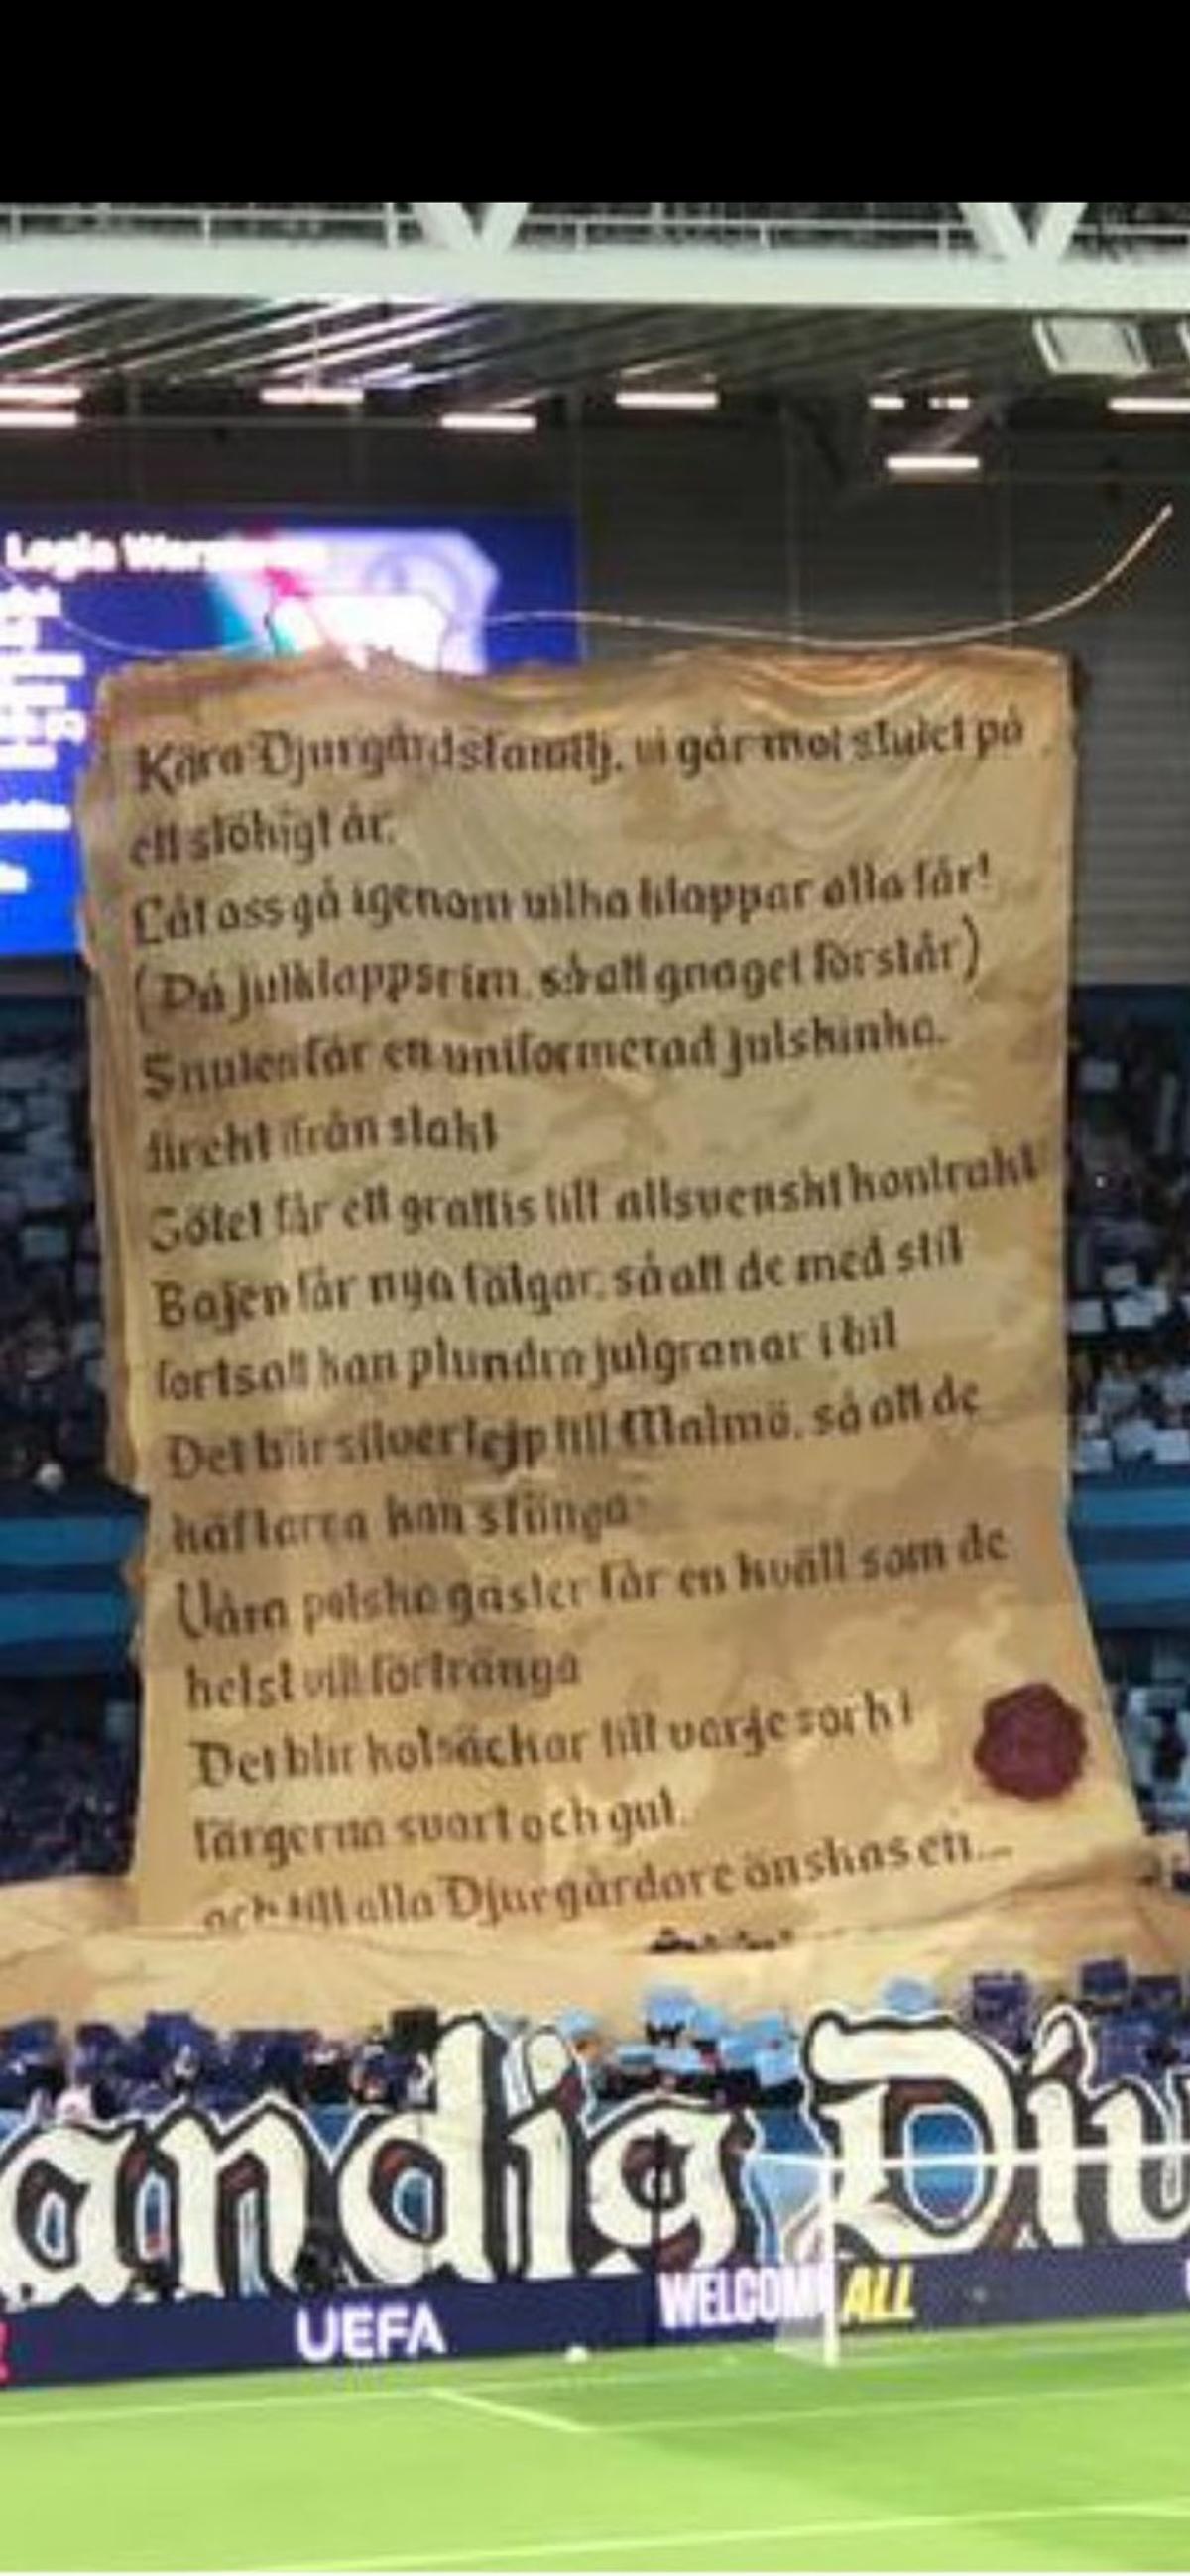 Legia Warszawa
Kära Djurgårdsfamilj, vi går mot slutet på
ett stökigt år.
Låt oss gå igenom vilka klappar alla får!
(På julklappsrim, så att gnaget förstår)
Snuten får en uniformerad julskinka,
direkt ifrån slakt
Götet får ett grattis till allsvenskt kontrakt
Bajen får nya fälgar, så att de med stil
fortsatt kan plundra julgranar i bil
Det blir silvertejp till Malmö, så att de
käftarna kan stänga
Våra polska gäster får en kväll som de
helst vill förtränga
Det blir kolsäckar till varje sork i
färgerna svart och gul.
och till alla Djurgårdare önskas en...
andig Dju
WELCOME ALL
UEFA